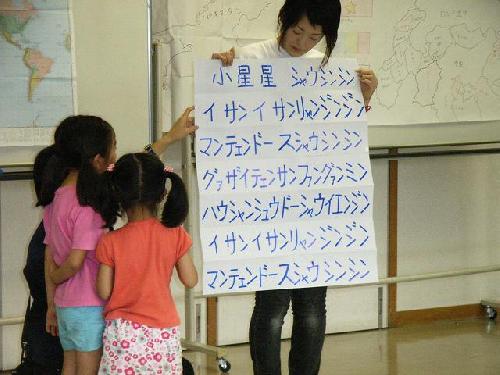 小星星 シャウシンシン
イ サンイ サンリャンジンジン
マンテェンドースシャウ シンシン
グァザイテェンサンファングァンミン
ハウシャンシュウドーシャウイエンジン
イ サンイ サンリャンジンジン
マンテェンドースシャウ シンシン